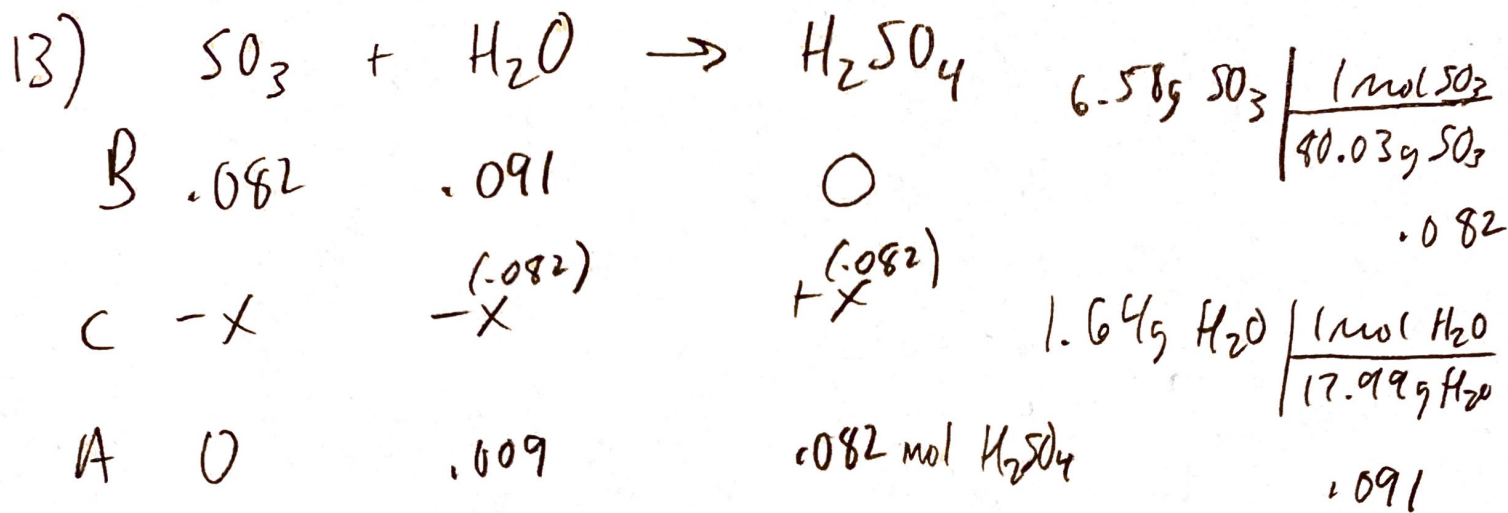 13) SO₃ + H₂O → H₂SO₄
B .082 .091 0
C -X -X (.082) +X (.082)
A 0 .009 .082 mol H₂SO₄
6.58g SO₃ | 1 mol SO₃
80.03g SO₃
.082
1.64g H₂O | 1 mol H₂O
17.99g H₂O
.091